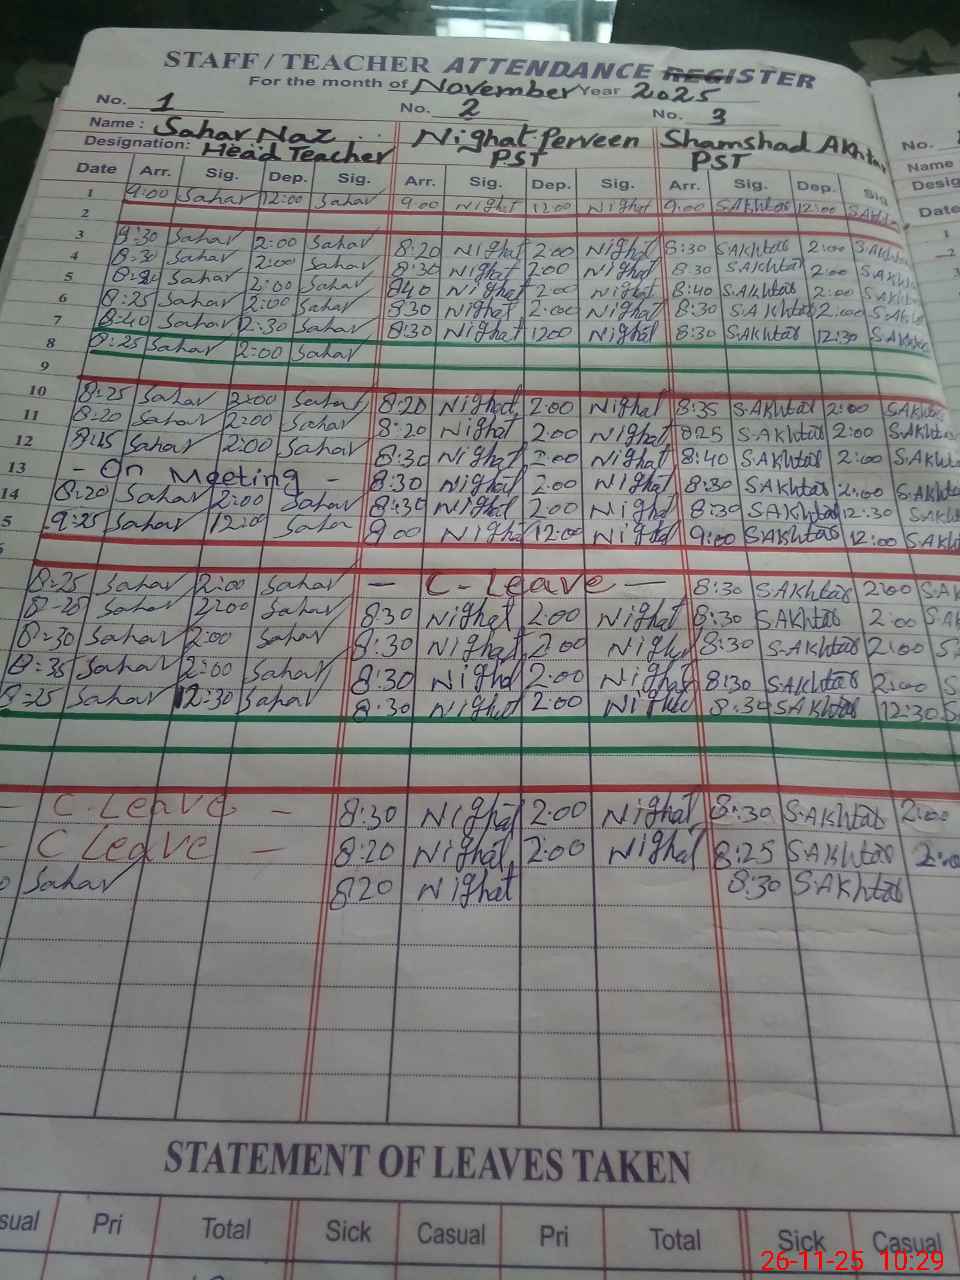 STAFF / TEACHER ATTENDANCE REGISTER
For the month of November Year 2025
No. 1 No. 2 No. 3 No.
Name : Sahar Naz Nighat Perveen Shamshad Akhtar Name
Designation: Head Teacher PST PST
Date Arr. Sig. Dep. Sig. Arr. Sig. Dep. Sig. Arr. Sig. Dep. Sig Date
1 9:00 Sahar 12:00 Sahar 9:00 Nighat 12:00 Nighat 9:00 S.Akhtar 12:00 S.Akhtar
2
3 Sahar 2:00 Sahar 8:20 Nighat 2:00 Nighat 8:30 S.Akhtar 2:00 S.Akhtar
4 8:30 Sahar 2:00 Sahar 8:30 Nighat 2:00 Nighat 8:30 S.Akhtar 2:00 S.Akhtar
5 Sahar 2:00 Sahar 8:40 Nighat 2:00 Nighat 8:40 S.Akhtar 2:00 S.Akhtar
6 8:25 Sahar 2:00 Sahar 8:30 Nighat 2:00 Nighat 8:30 S.Akhtar 2:00 S.Akhtar
7 8:40 Sahar 2:30 Sahar 8:30 Nighat 1200 Nighat 8:30 S.Akhtar 12:30 S.Akhtar
8 8:25 Sahar 2:00 Sahar
9
10 8:25 Sahar 2:00 Sahar 8:20 Nighat 2:00 Nighat 8:35 S.Akhtar 2:00 S.Akhtar
11 8:20 Sahar 2:00 Sahar 8:20 Nighat 2:00 Nighat 825 S.Akhtar 2:00 S.Akhtar
12 Sahar 2:00 Sahar 8:30 Nighat 2:00 Nighat 8:40 S.Akhtar 2:00 S.Akhtar
13 - On Meeting - 8:30 Nighat 2:00 Nighat 8:30 S.Akhtar 2:00 S.Akhtar
14 8:20 Sahar 2:00 Sahar 8:30 Nighat 2:00 Nighat 8:30 S.Akhtar 12:30 S.Akhtar
5 9:25 Sahar 12:00 Sahar 9:00 Nighat 12:00 Nighat 9:00 S.Akhtar 12:00 S.Akhtar
8:25 Sahar 2:00 Sahar — C-Leave — 8:30 S.Akhtar 2:00
8:25 Sahar 2:00 Sahar 8:30 Nighat 2:00 Nighat 8:30 S.Akhtar 2:00
8:30 Sahar 2:00 Sahar 8:30 Nighat 2:00 Nighat 8:30 S.Akhtar 2:00
8:35 Sahar 2:00 Sahar 8:30 Nighat 2:00 Nighat 8:30 S.Akhtar 2:00
8:25 Sahar 12:30 Sahar 8:30 Nighat 2:00 Nighat 8:30 S.Akhtar 12:30
- C.Leave - 8:30 Nighat 2:00 Nighat 8:30 S.Akhtar 2:00
- C Leave - 8:20 Nighat 2:00 Nighat 8:25 S.Akhtar
Sahar 8:20 Nighat 8:30 S.Akhtar
STATEMENT OF LEAVES TAKEN
sual Pri Total Sick Casual Pri Total Sick Casual
26-11-25 10:29